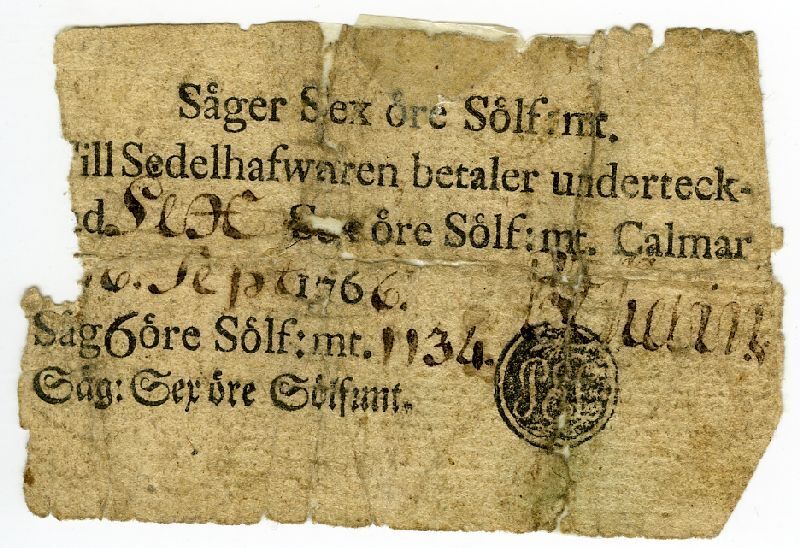 Såger Sex öre Sölf:mt.
Till Sedelhafwaren betaler underteck-
nad Sex Sex öre Sölf:mt. Calmar
16. Sept 1766.
Såg 6 öre Sölf:mt. 1134.
Såg: Sex öre Sölfmnt.